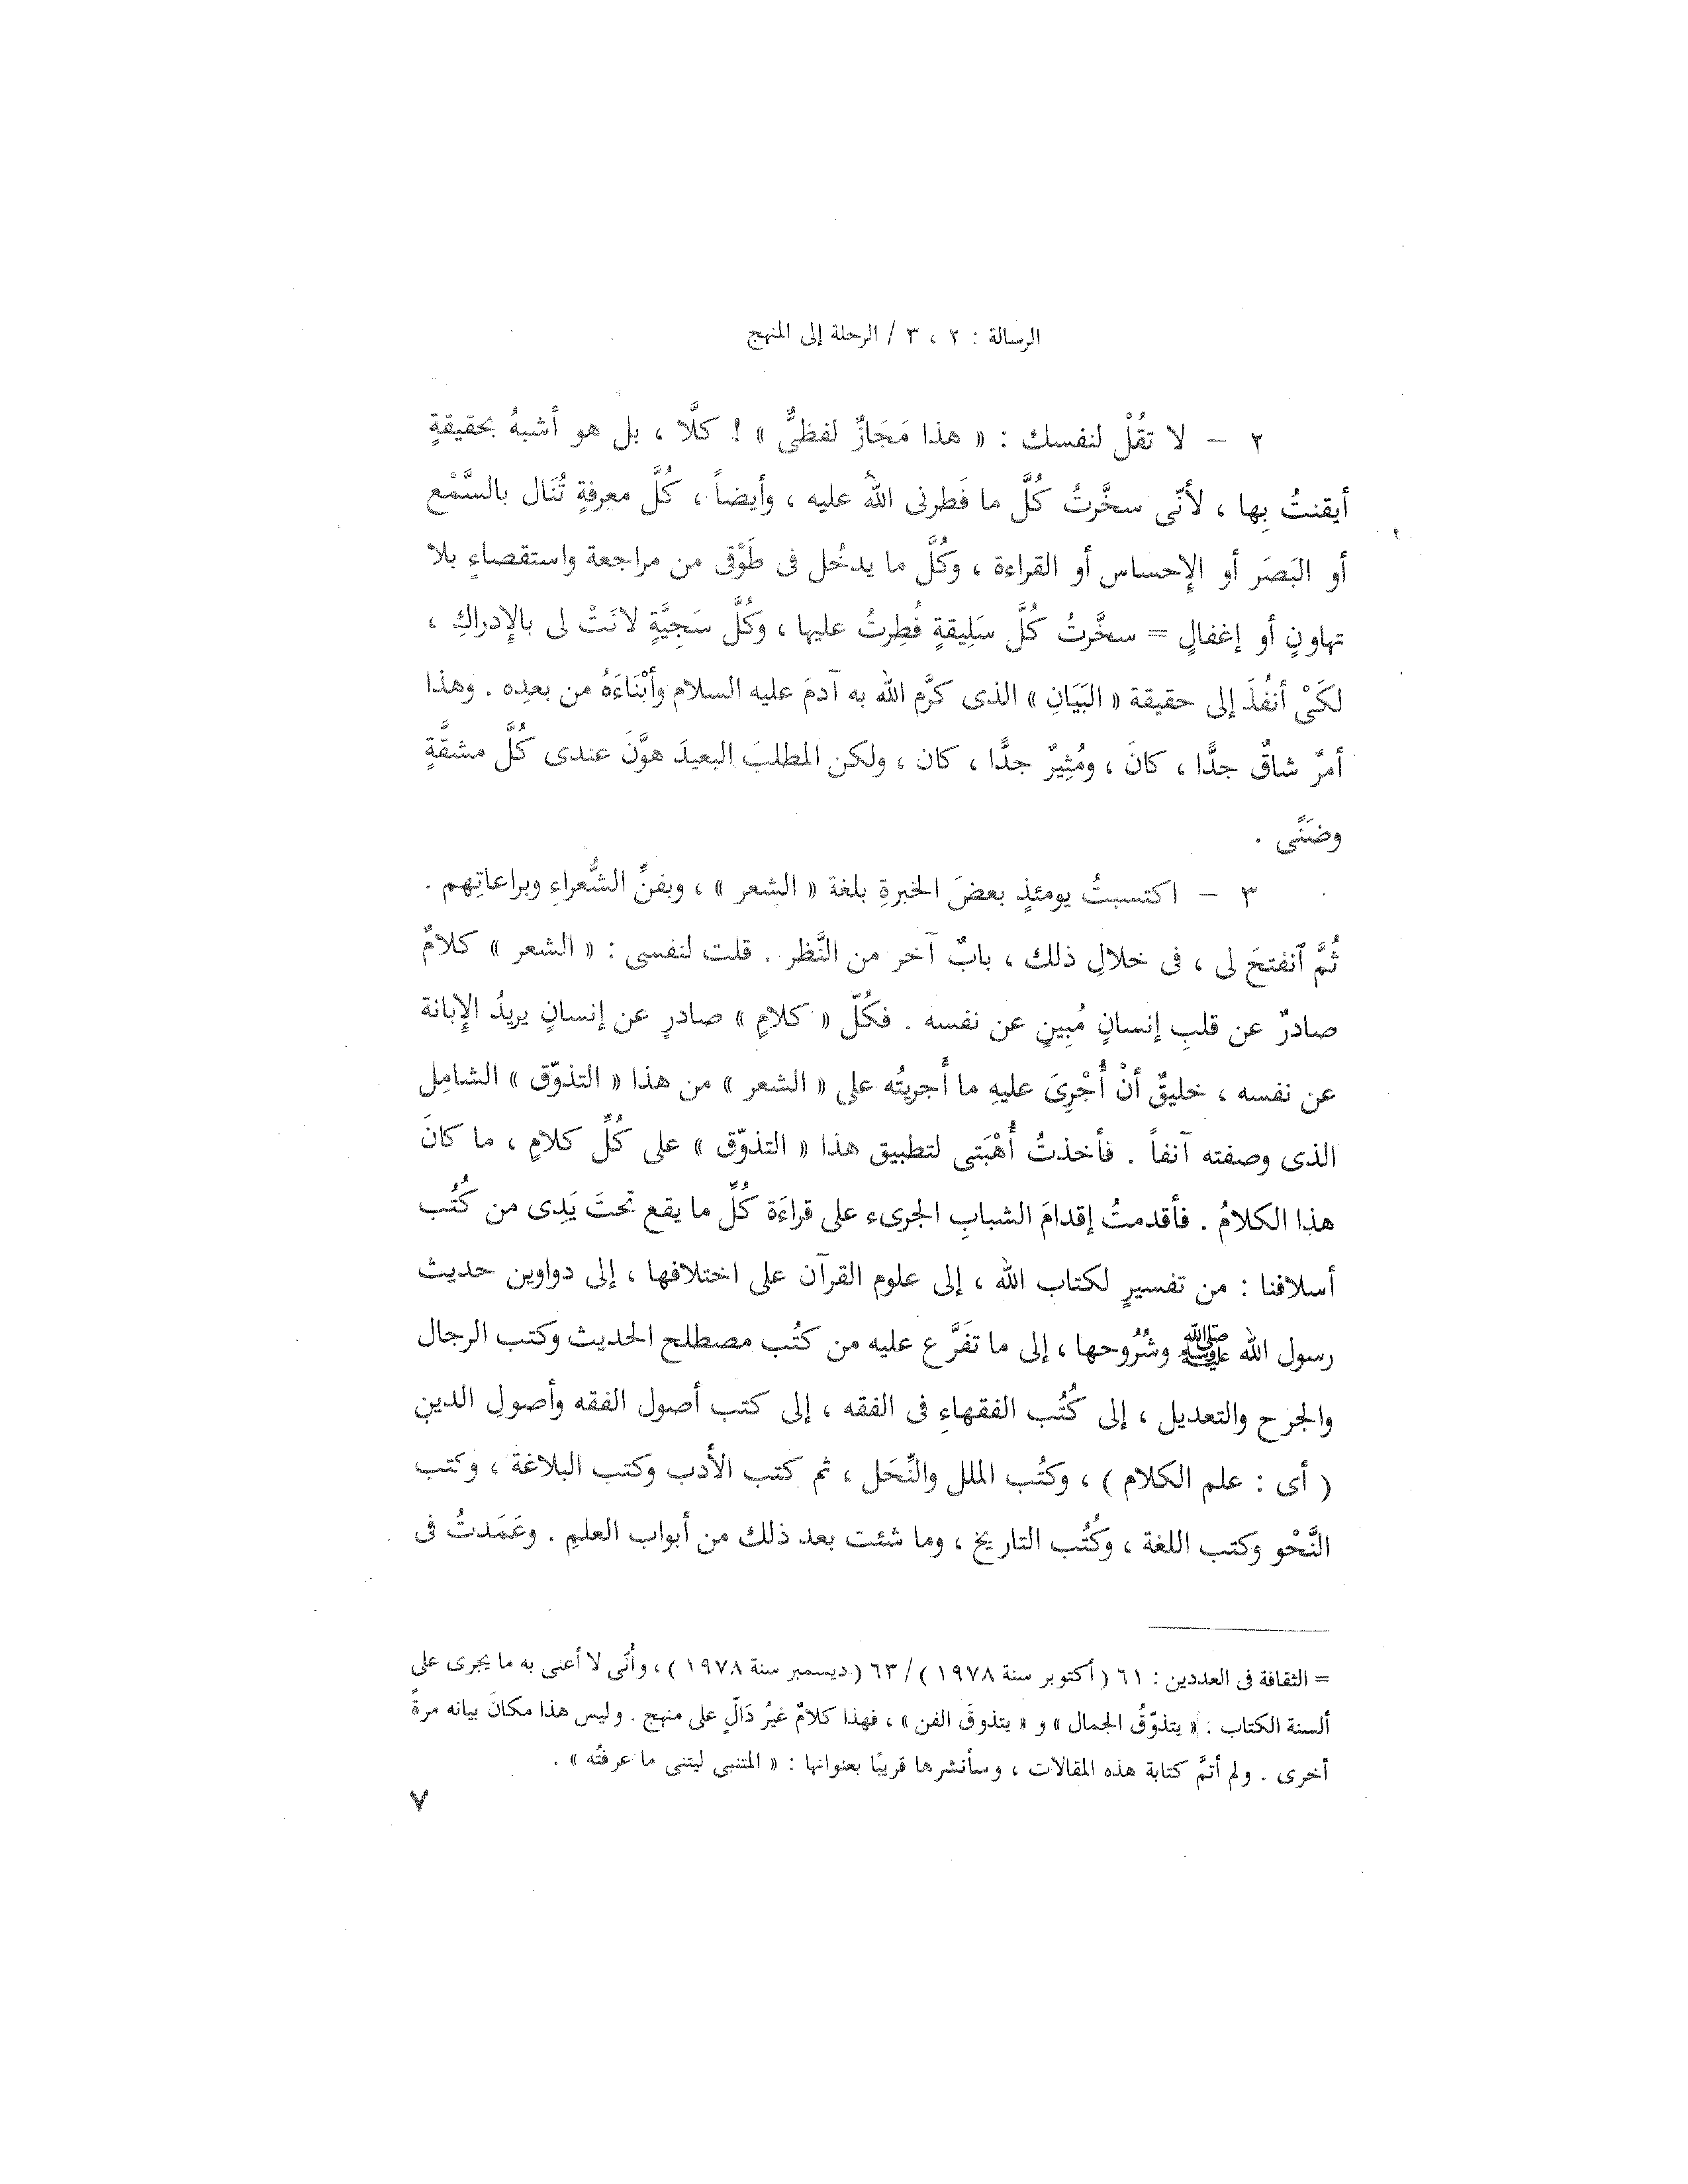 الرسالة : ٢ ، ٣ / الرحلة إلى المنهج
٢ – لا تقُلْ لنفسك : « هذا مَجَازٌ لفظىٌّ » ! كلَّا ، بل هو أشبهُ بحقيقةٍ
أيقنتُ بِها ، لأنّى سخَّرتُ كُلَّ ما فَطرنى اللهُ عليه ، وأيضاً ، كُلَّ معرفةٍ تُنَال بالسَّمْع
أو البَصَر أو الإحساس أو القراءة ، وكُلَّ ما يدخُل فى طَوْقى من مراجعة واستقصاءٍ بلا
تهاونٍ أو إغفالٍ = سخَّرتُ كُلَّ سَلِيقةٍ فُطِرتُ عليها ، وكُلَّ سَجِيَّةٍ لانَتْ لى بالإدراكِ ،
لكَىْ أنفُذَ إلى حقيقة « البَيَانِ » الذى كرَّم الله به آدمَ عليه السلام وأبْنَاءَهُ من بعدِه . وهذا
أمرٌ شاقٌ جدًّا ، كانَ ، ومُثِيرٌ جدًّا ، كان ، ولكن المطلبَ البعيدَ هوَّنَ عندى كُلَّ مشقَّةٍ
وضَنًى .
٣ – اكتسبتُ يومئذٍ بعضَ الخبرةِ بلغة « الشعر » ، وبفنِّ الشُّعراءِ وبراعاتِهم .
ثُمَّ ٱنفتحَ لى ، فى خلالِ ذلك ، بابٌ آخر من النَّظر . قلت لنفسى : « الشعر » كلامٌ
صادرٌ عن قلبِ إنسانٍ مُبِينٍ عن نفسه . فكُلّ « كلامٍ » صادرٍ عن إنسانٍ يريدُ الإبانة
عن نفسه ، خليقٌ أنْ أُجْرِىَ عليهِ ما أجريتُه على « الشعر » من هذا « التذوّق » الشامِل
الذى وصفته آنفاً . فأخذتُ أُهْبَتى لتطبيق هذا « التذوّق » على كُلِّ كلامٍ ، ما كانَ
هذا الكلامُ . فأقدمتُ إقدامَ الشبابِ الجرىء على قراءَة كُلِّ ما يقع تحتَ يَدِى من كُتُب
أسلافنا : من تفسيرٍ لكتاب الله ، إلى علوم القرآن على اختلافها ، إلى دواوين حديث
رسول الله ﷺ وشُرُوحها ، إلى ما تفَرَّع عليه من كتُب مصطلح الحديث وكتب الرجال
والجرْح والتعديل ، إلى كُتُب الفقهاءِ فى الفقه ، إلى كتب أصول الفقه وأصولِ الدينِ
( أى : علم الكلام ) ، وكتُب الملل والنِّحَل ، ثم كتب الأدب وكتب البلاغة ، وكتب
النَّحْو وكتب اللغة ، وكُتُب التاريخ ، وما شئت بعد ذلك من أبواب العلمِ . وعَمَدتُ فى
= الثقافة فى العددين : ٦١ ( أكتوبر سنة ١٩٧٨ ) / ٦٣ ( ديسمبر سنة ١٩٧٨ ) ، وأنّى لا أعنى به ما يجرى على
ألسنة الكتاب : « يتذوّقُ الجمال » و « يتذوقَ الفن » ، فهذا كلامٌ غيرُ دَالّ على منهج . وليس هذا مكانَ بيانه مرةً
أخرى . ولم أتمَّ كتابة هذه المقالات ، وسأنشرها قريبًا بعنوانها : « المتنبى ليتنى ما عرفتُه » .
٧